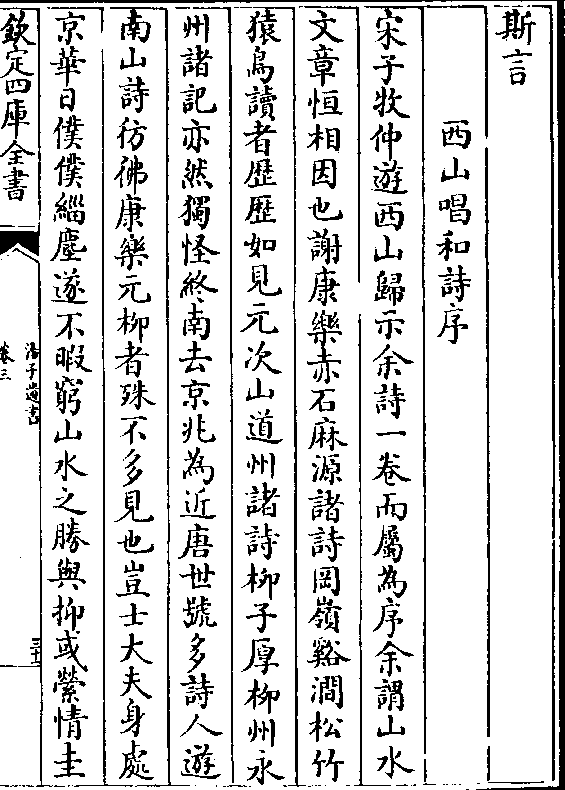 斯言
西山唱和詩序
宋子牧仲遊西山歸示余詩一卷而屬為序余謂山水
文章恒相因也謝康樂赤石麻源諸詩岡嶺谿澗松竹
猿鳥讀者歴歴如見元次山道州諸詩柳子厚柳州永
州諸記亦然獨怪終南去京兆為近唐世號多詩人遊
南山詩彷彿康樂元柳者殊不多見也豈士大夫身處
京華日僕僕緇塵遂不暇窮山水之勝與抑或縈情圭
欽定四庫全書
卷三